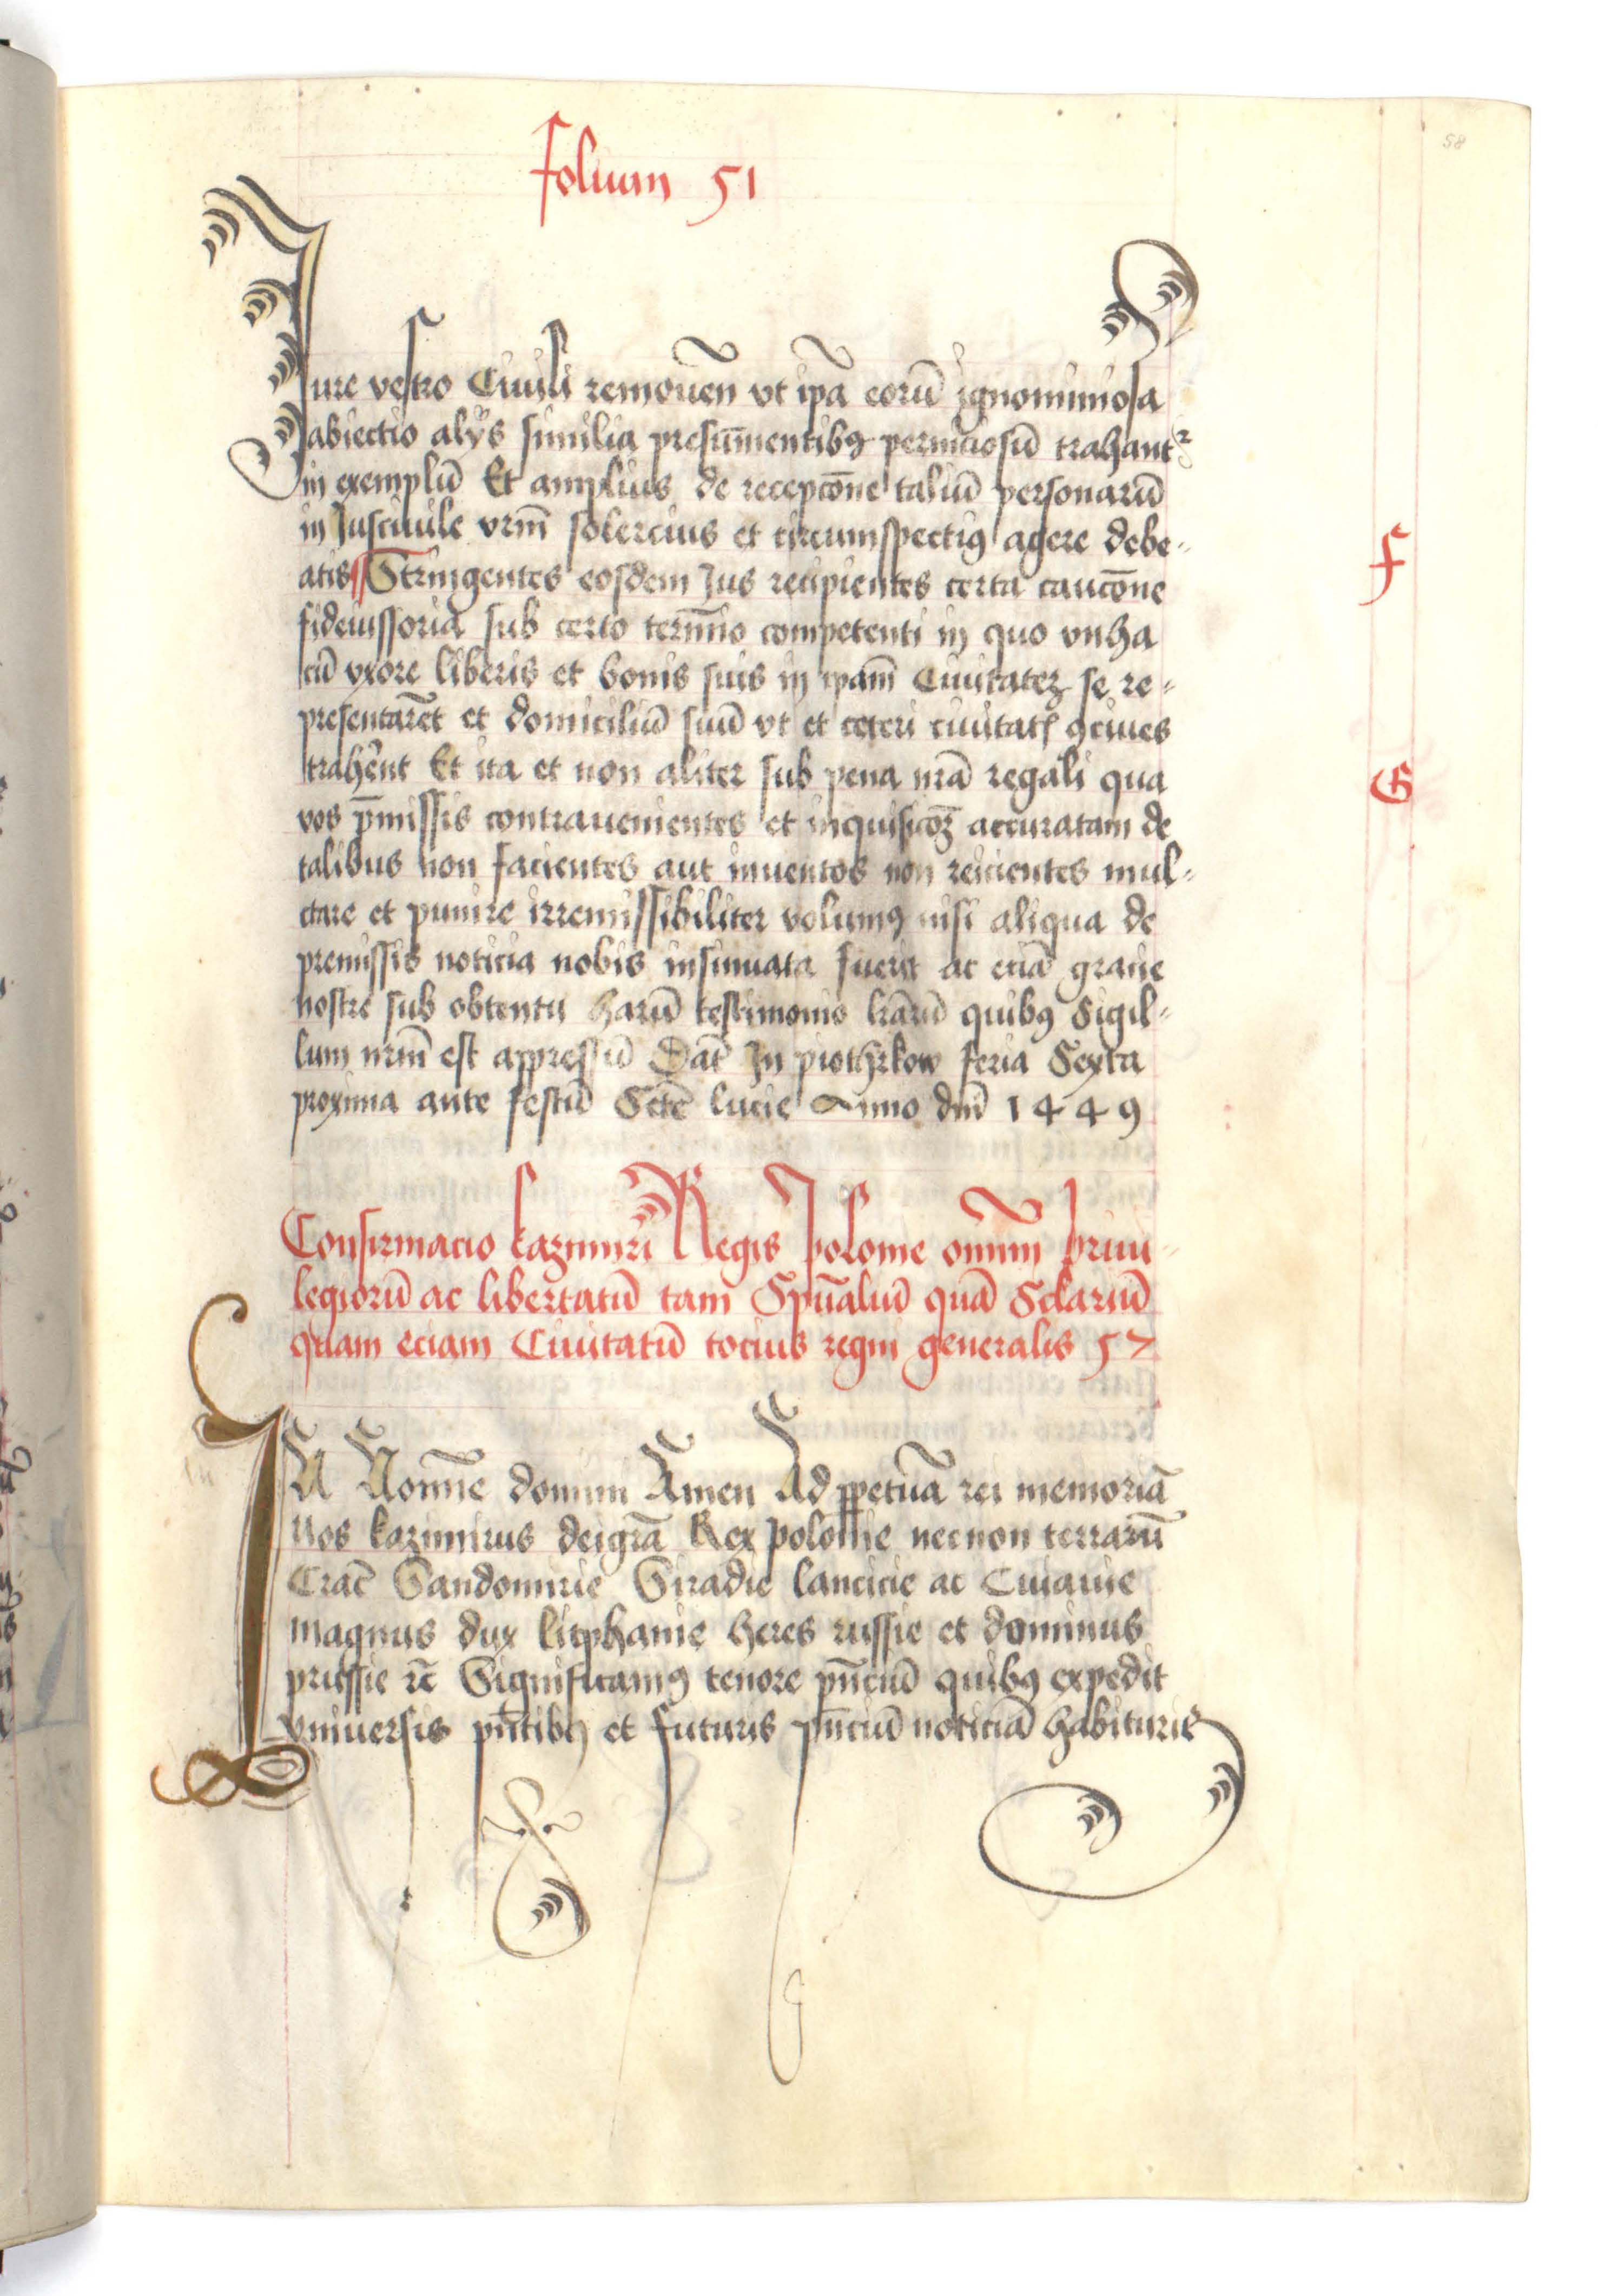 folium 51
58
Jure vestro Ciuili remouen̄ vt ip̄a eorū ignominiosa
abiectio alÿs similia presum̄entibꝯ perniciosū trahantᷣ
in exemplū Et amplius de recepcōne taliū personarū
in Jusciuile vrm̄ solercius et circumspectiꝯ agere debe-
atis Stringentes eosdem Jus recipientes certa caucōne
fideiussoria sub certo termīo competenti in quo vnha
cū vxore liberis et bonis suis in ipam̄ Ciuitatēz se re-
presentarēt et domiciliū suū vt et ceteri ciuitatꝭ ꝯciues
trahēnt Et ita et non aliter sub pena nrā regali qua
vos p̄missis contrauenientes et inquisicōꝫ accuratam de
talibus non facientes aut inuentos non reicientes mul-
ctare et punire irremissibiliter volumꝯ nisi aliqua de
premissis noticia nobis insinuata fuerit ac eciā gracie
nostre sub obtentu harū testimonio lrārū quibꝯ Sigil-
lum nrm̄ est appressū Dat̄ In piothrkow feria Sexta
proxima ante festū Sctē lucie Anno dnī 1449
F
G
Confirmacio kazimiri Regis polonie omnīm priui-
legiorū ac libertatū tam Spūaliū quā Sclariū
quam eciam Ciuitatū tocius regni generalis 57
IN Nomīe domini Amen Ad ꝑpetuā rei memoriā
Nos kazimirus deigrā Rex polonie necnon terrarū
Crac̄ Sandomirie Siradie lancicie ac Cuiauie
magnus dux litphanie heres russie et dominus
prussie ꝛc̄ Significamꝯ tenore pn̄ciū quibꝯ expedit
vniuersis pn̄tibꝯ et futuris pn̄ciū noticiā habituris